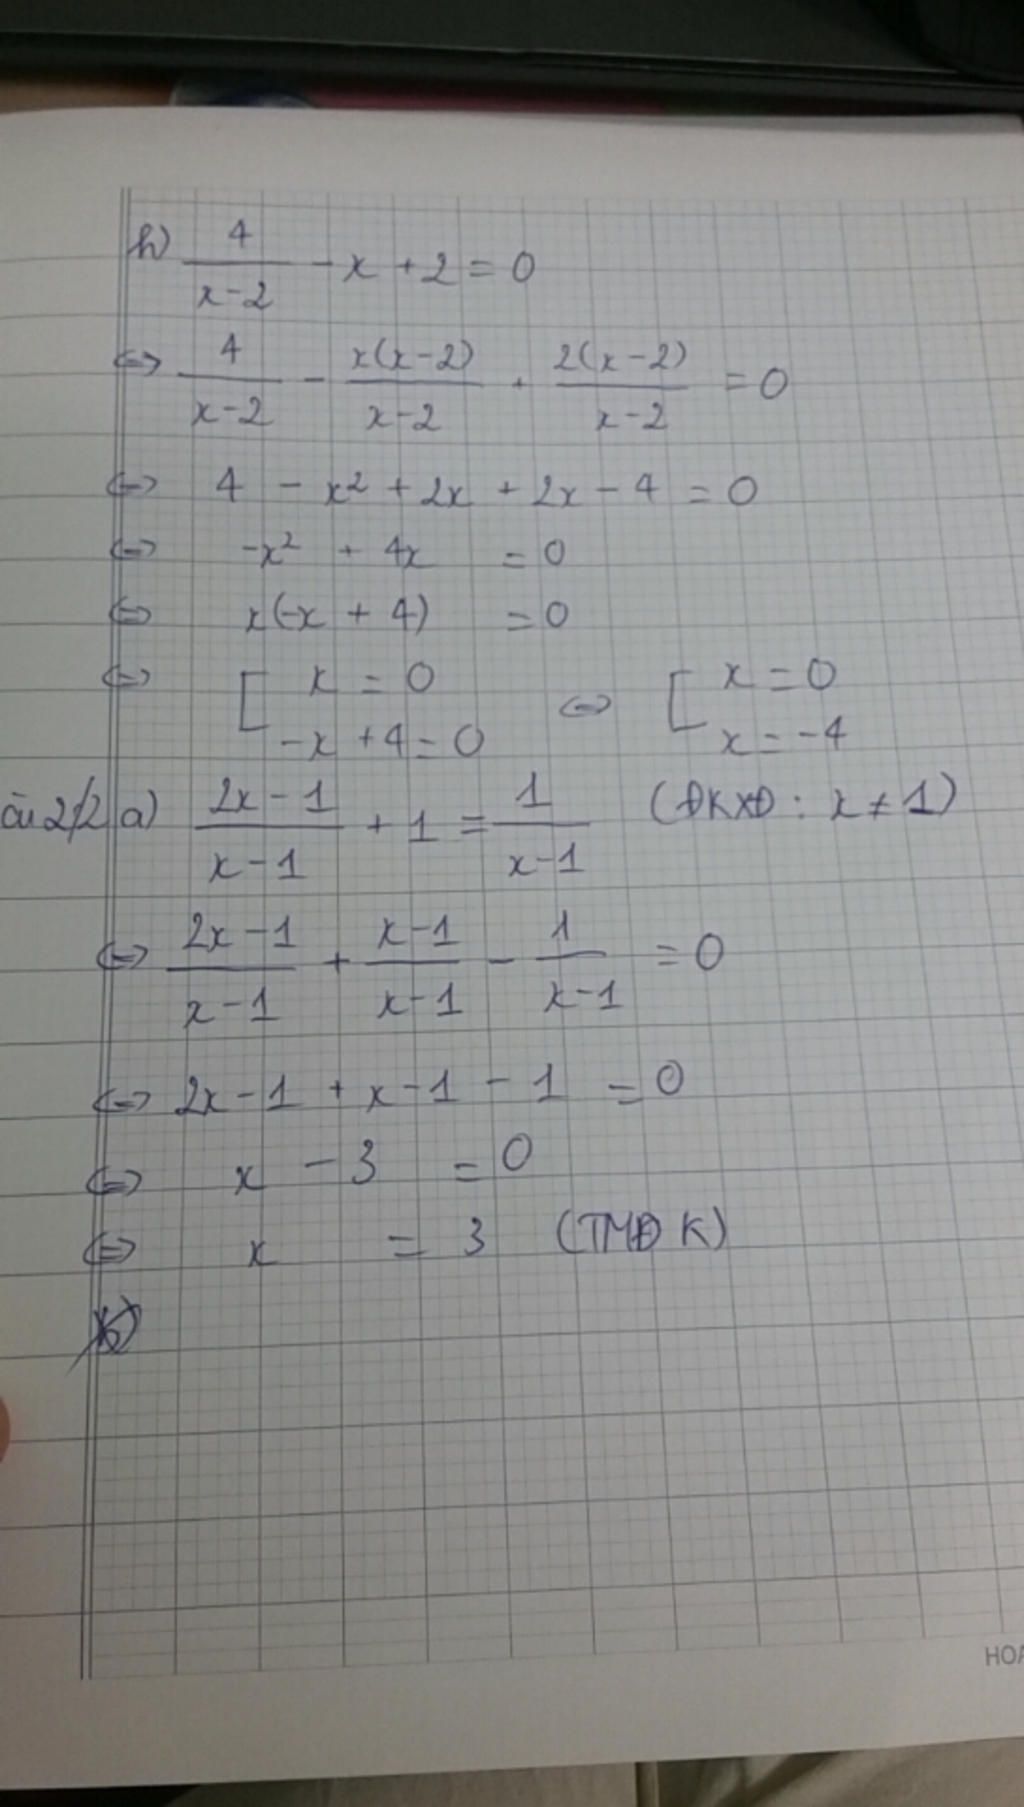 h) 4/(x-2) - x + 2 = 0
⇔ 4/(x-2) - x(x-2)/(x-2) + 2(x-2)/(x-2) = 0
⇔ 4 - x² + 2x + 2x - 4 = 0
⇔ -x² + 4x = 0
⇔ x(-x + 4) = 0
⇔ [ x = 0 ; -x + 4 = 0 ⇔ [ x = 0 ; x = -4
2/2 a) (2x-1)/(x-1) + 1 = 1/(x-1) (ĐKXĐ : x ≠ 1)
⇔ (2x-1)/(x-1) + (x-1)/(x-1) - 1/(x-1) = 0
⇔ 2x - 1 + x - 1 - 1 = 0
⇔ x - 3 = 0
⇔ x = 3 (TMĐK)
b)
HOA